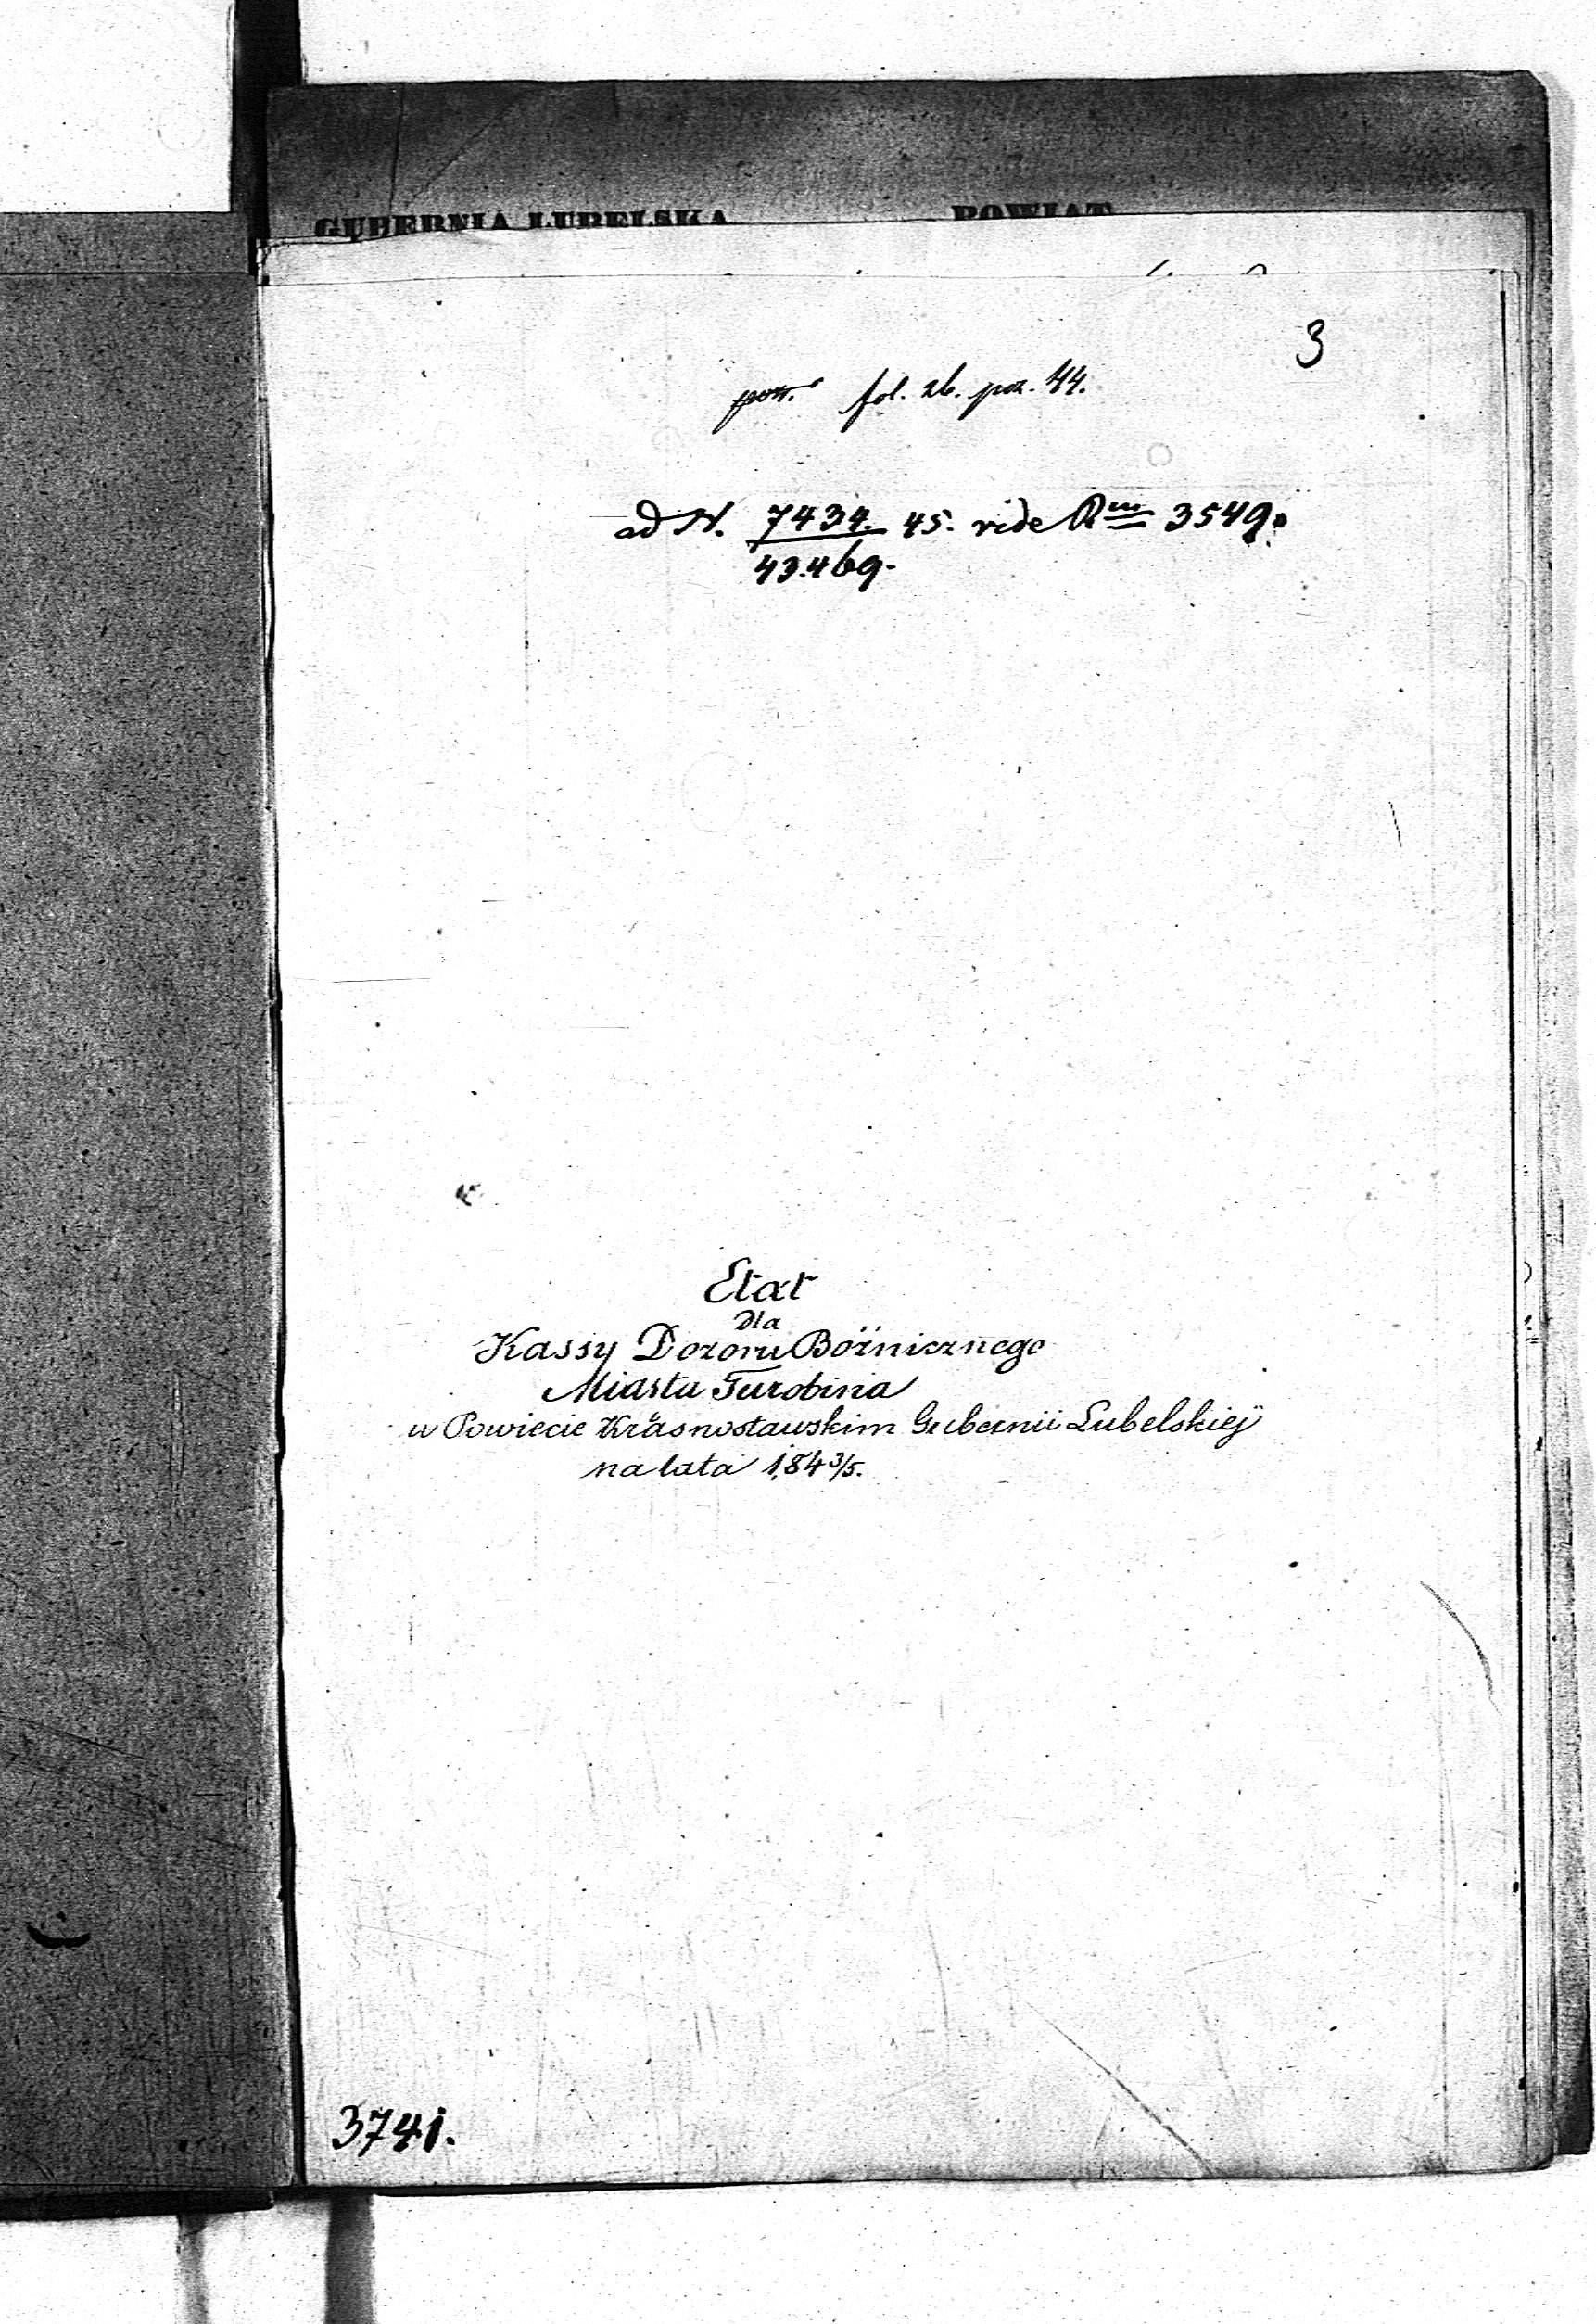 GUBERNIA LUBELSKA POWIAT
3
fol. 26. poz. 44.
ad N. 7434. 45. vide Rm 3549.
43.469.
Etat
Dla
Kassy Dozoru Bóżnicznego
Miasta Turobina
w Powiecie Krasnostawskim Gubernii Lubelskiej
na lata 1843/5.
3741.